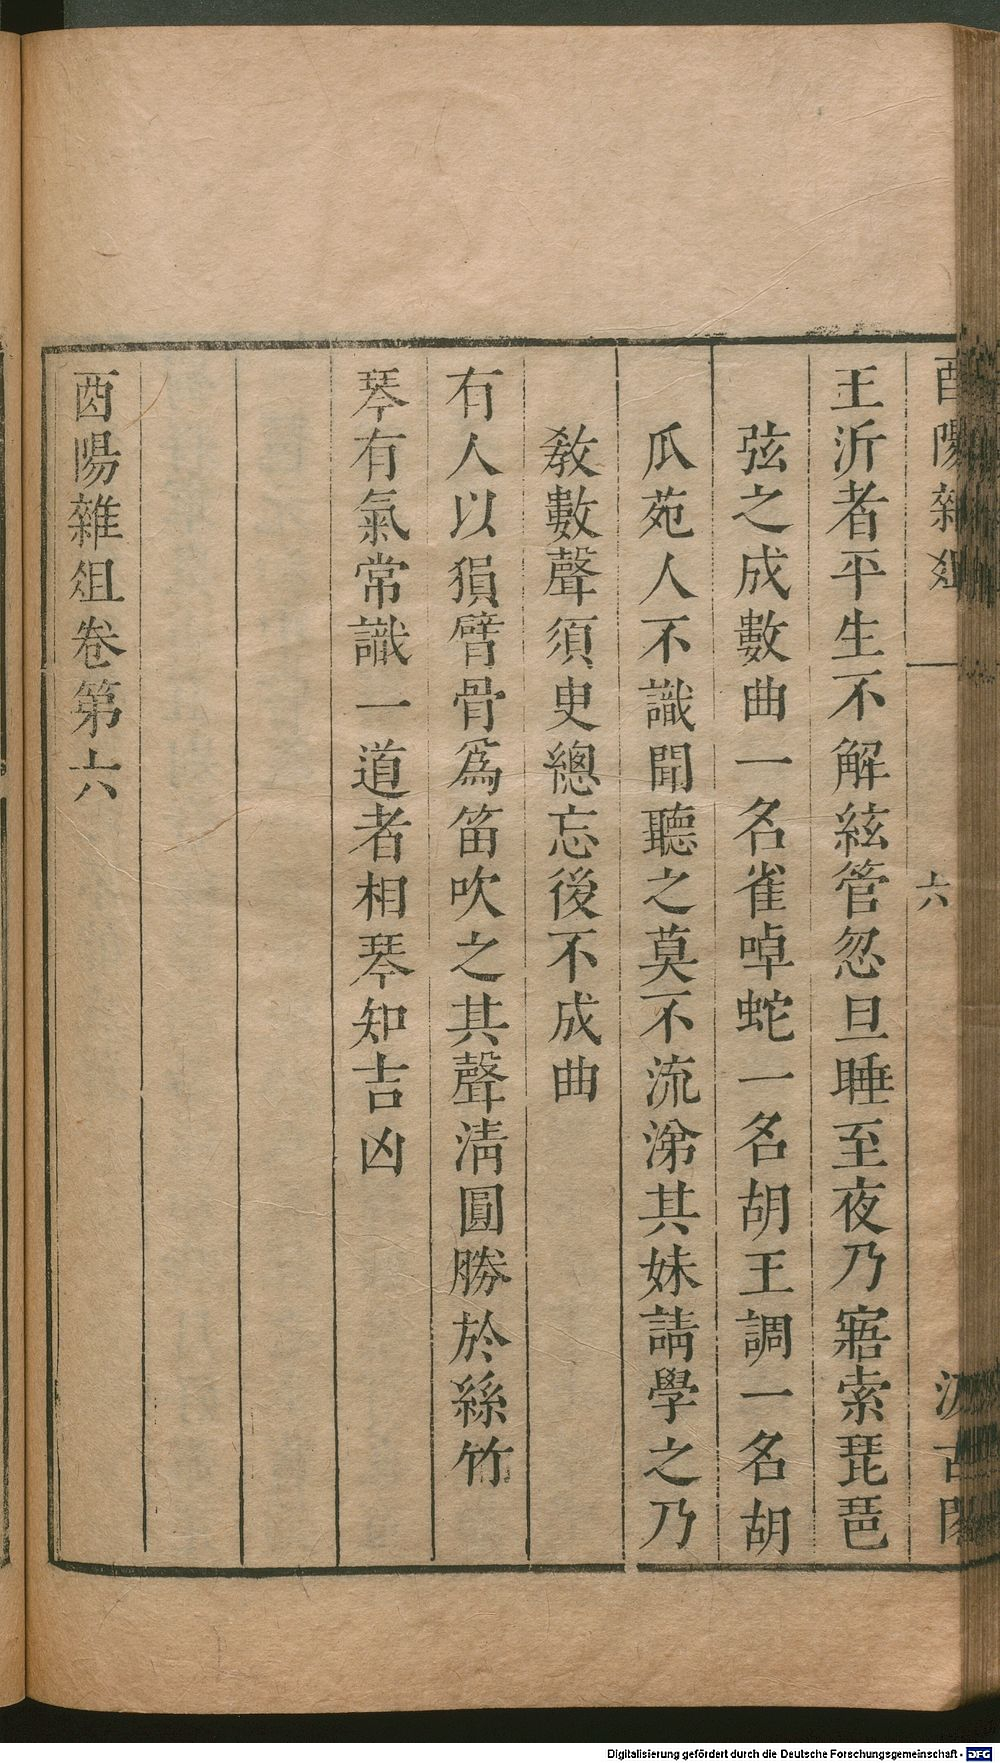 酉陽雜俎
六
汲古閣
王沂者平生不解絃管忽旦睡至夜乃寤索琵琶
弦之成數曲一名雀啅蛇一名胡王調一名胡
瓜苑人不識聞聽之莫不流涕其妹請學之乃
敎數聲須臾總忘後不成曲
有人以猨臂骨爲笛吹之其聲淸圓勝於絲竹
琴有氣常識一道者相琴知吉凶
酉陽雜俎卷第六
Digitalisierung gefördert durch die Deutsche Forschungsgemeinschaft - DFG